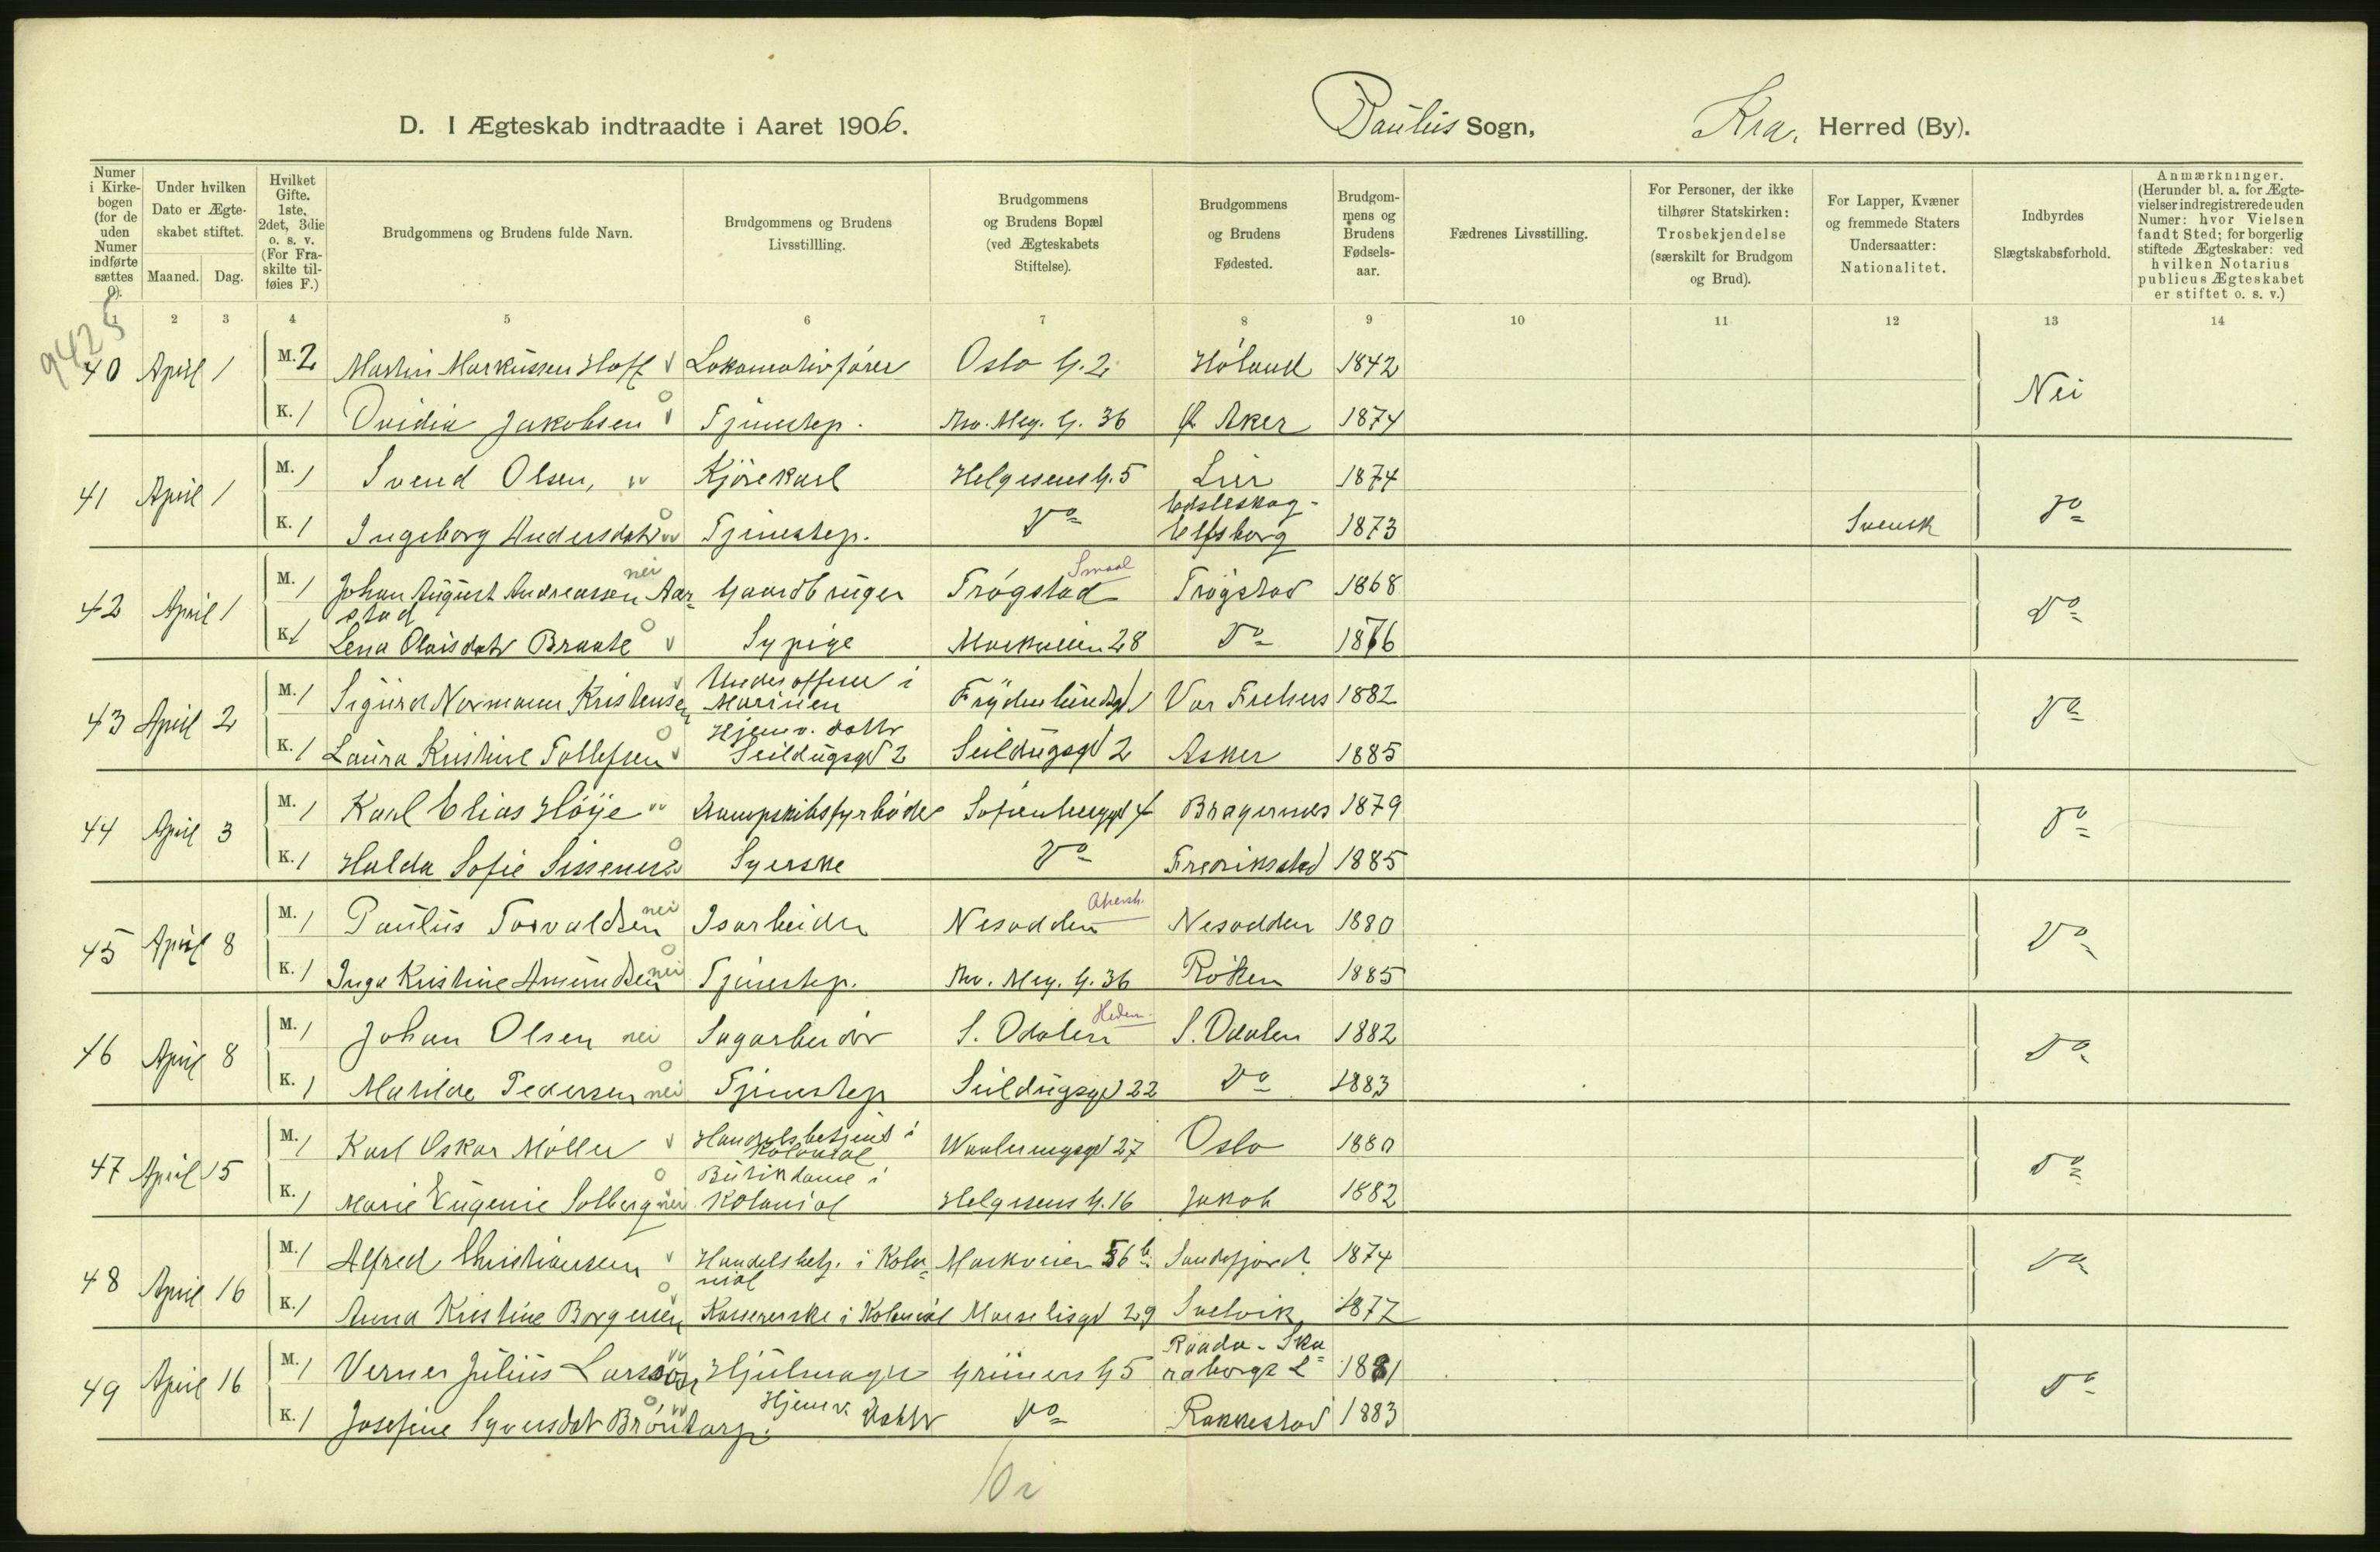 D. I Ægteskab indtraadte i Aaret 1906.
Paulus Sogn,
Kra. Herred (By).
Numer i Kirkebogen (for de uden Numer indførte sættes 0).
Under hvilken Dato er Ægteskabet stiftet.
Maaned. Dag.
Hvilket Gifte. 1ste, 2det, 3die o. s. v. (For Fraskilte tilføies F.)
Brudgommens og Brudens fulde Navn.
Brudgommens og Brudens Livsstillling.
Brudgommens og Brudens Bopæl (ved Ægteskabets Stiftelse).
Brudgommens og Brudens Fødested.
Brudgommens og Brudens Fødselsaar.
Fædrenes Livsstilling.
For Personer, der ikke tilhører Statskirken: Trosbekjendelse (særskilt for Brudgom og Brud).
For Lapper, Kvæner og fremmede Staters Undersaatter: Nationalitet.
Indbyrdes Slægtskabsforhold.
Anmærkninger. (Herunder bl. a. for Ægtevielser indregistrerede uden Numer: hvor Vielsen fandt Sted; for borgerlig stiftede Ægteskaber: ved hvilken Notarius publicus Ægteskabet er stiftet o. s. v.)
1 2 3 4 5 6 7 8 9 10 11 12 13 14
9425
40 April 1 M. 2 Martin Markussen Hoff v Lokomotivfører Oslo G. 2 Høland 1842 Nei
K. 1 Ovidia Jakobsen v Tjenestep. Thv. Mey. G. 36 Ø Aker 1874
41 April 1 M. 1 Svend Olsen, vv Kjørekarl Helgesens G. 5 Lier 1874 Do
Edsleskog -
K. 1 Ingeborg Andersdatr vv Tjenestep. Do Elfsborg 1873 Svensk
nei Smaal
42 April 1 M. 1 Johan August Andreassen Aar- Gaardbruger Trøgstad Trøgstad 1868 Do
stad
K. 1 Lena Olaisdatr Braate v Sypige Markveien 28 Do 1876
Underofficer i
43 April 2 M. 1 Sigurd Normann Kristensen v Marinen Frydenlundsgd 1 Vor Frelsers 1882 Do
Hjemv. datter
K. 1 Laura Kristine Tollefsen v Seildugsgd 2 Seildugsgd 2 Asker 1885
44 April 3 M. 1 Karl Elias Høije vv Dampskibsfyrbøder Sofienberggd 4 Bragernes 1879 Do
K. 1 Halda Sofie Syerske Do Fredriksstad 1885
nei Akersh.
45 April 8 M. 1 Paulus Torvaldsen Isarbeider Nesodden Nesodden 1880 Do
K. 1 Inga Kristine Amundsen nei Tjenestep. Thv. Mey. G. 36 Røken 1885
Hedem.
46 April 8 M. 1 Johan Olsen nei Sagarbeider S. Odalen S. Odalen 1882 Do
K. 1 Matilde Pedersen nei Tjenestep Seildugsgd 22 Do 1883
47 April 15 M. 1 Karl Oskar Møller v Handelsbetjent i Waaleringsgd 27 Oslo 1880 Do
Kolonial
Butikdame i
K. 1 Marie Eugenie Solberg nei Kolonial Helgesens G. 16 Jakob 1882
48 April 16 M. 1 Alfred Christiansen v Handelsbetj. i Kolo- Markveien 56 b. Sandefjord 1874 Do
nial
K. 1 Anna Kristine Borgersen v Kassererske i Kolonial Marselisgd 29 Svelvik 1877
Raada - Ska
49 April 16 M. 1 Verner Julius Larsson vv Hjulmager Grüners G 5 raborgs L 1881 Do
K. 1 Josefine Syversdat Brøntorp. vv Hjemv. Datter Do Rakkestad 1883